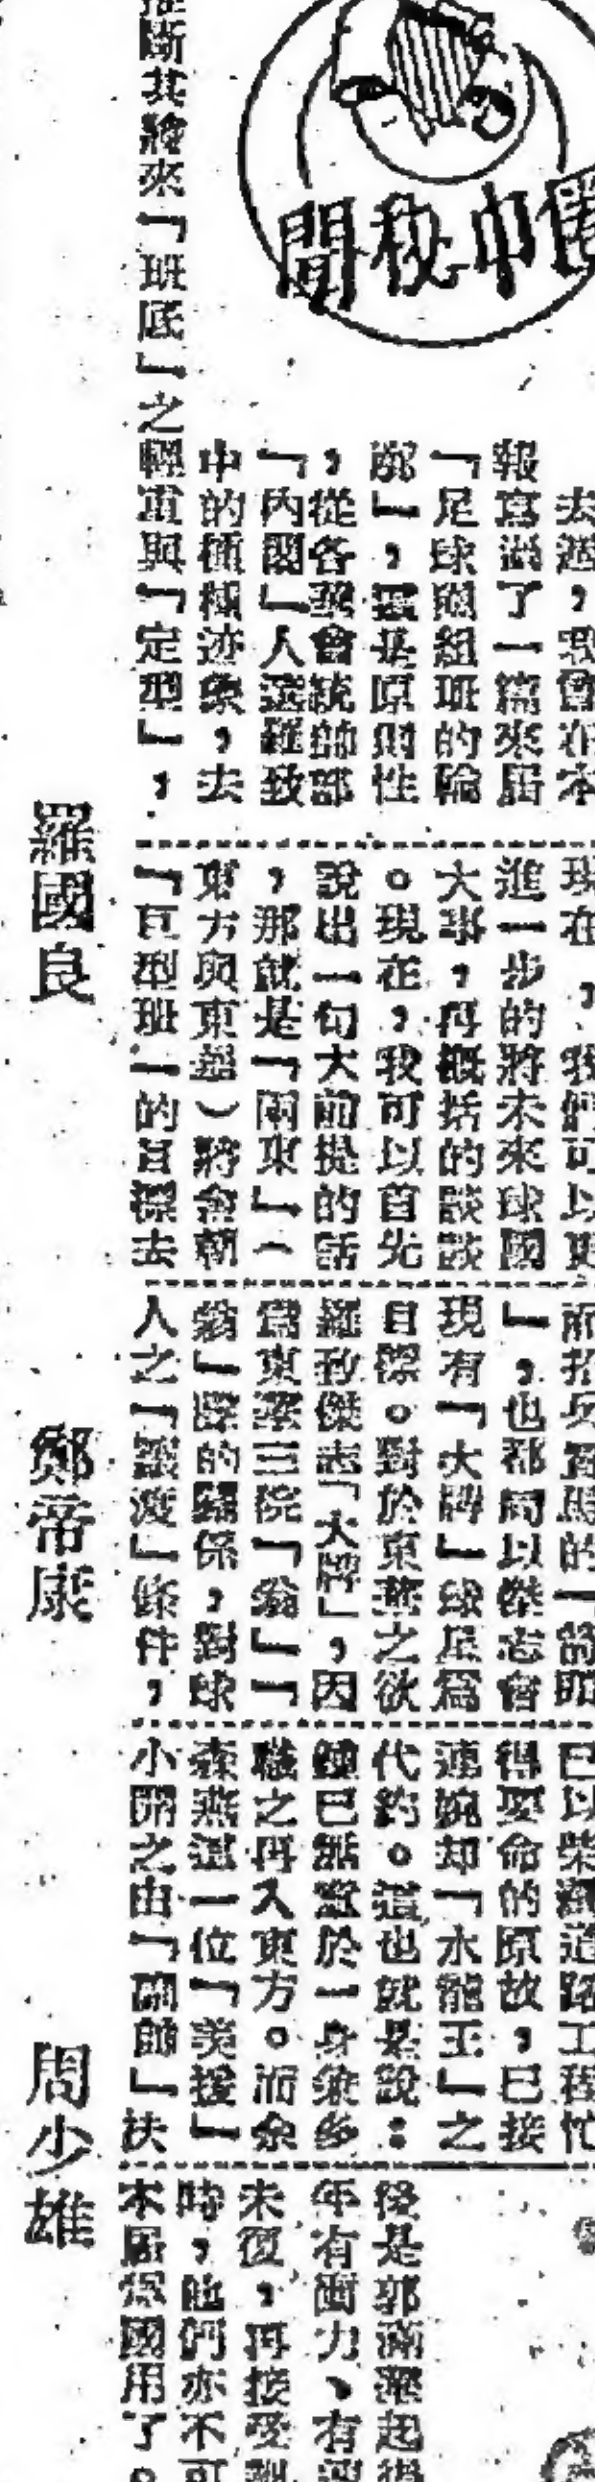 圈中秘聞
去週，我會在本
報寫過了一篇來屆
「足球圈組班的輪
廓」，還是原則性
，從各球會統帥部
「內閣」人選羅致
中的種種迹象，去
推斷其將來「班底」之輕重與「定型」，
現在，我們可以更
進一步的將未來球國
大事，再概括的談談
。現在，我可以首先
說出一句大前提的話
，那就是「兩東」（
東方與東華）將會朝
「巨型班」的目標去
而招兵買馬的一箭
」，也都同以傑志會
現有「大牌」球星爲
目標。對於東華之欲
羅致傑志「大牌」，因
爲東華三院「翁」「
翁」的關係，對球
人之「過渡」條件，
已以柴灣道路工程忙
得要命的原故，已接
連婉却「水龍王」之
代約。這也就是說：
已無意於一身兼多
職之再入東方。而余
森燕這一位「美援」
小開之由「副帥」扶
後是郭滿
年有衝力、有
未復，再接受
時，他們亦不可
本屆爲國用了。
羅國良
鄭帝康
周少雄